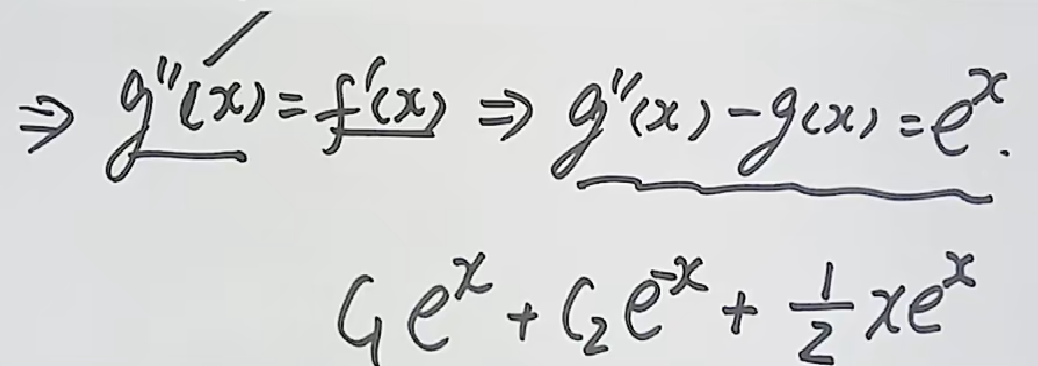 ⇒ g''(x) = f'(x) ⇒ g''(x) - g(x) = e^x.
C₁e^x + C₂e^{-x} + \frac{1}{2}xe^x